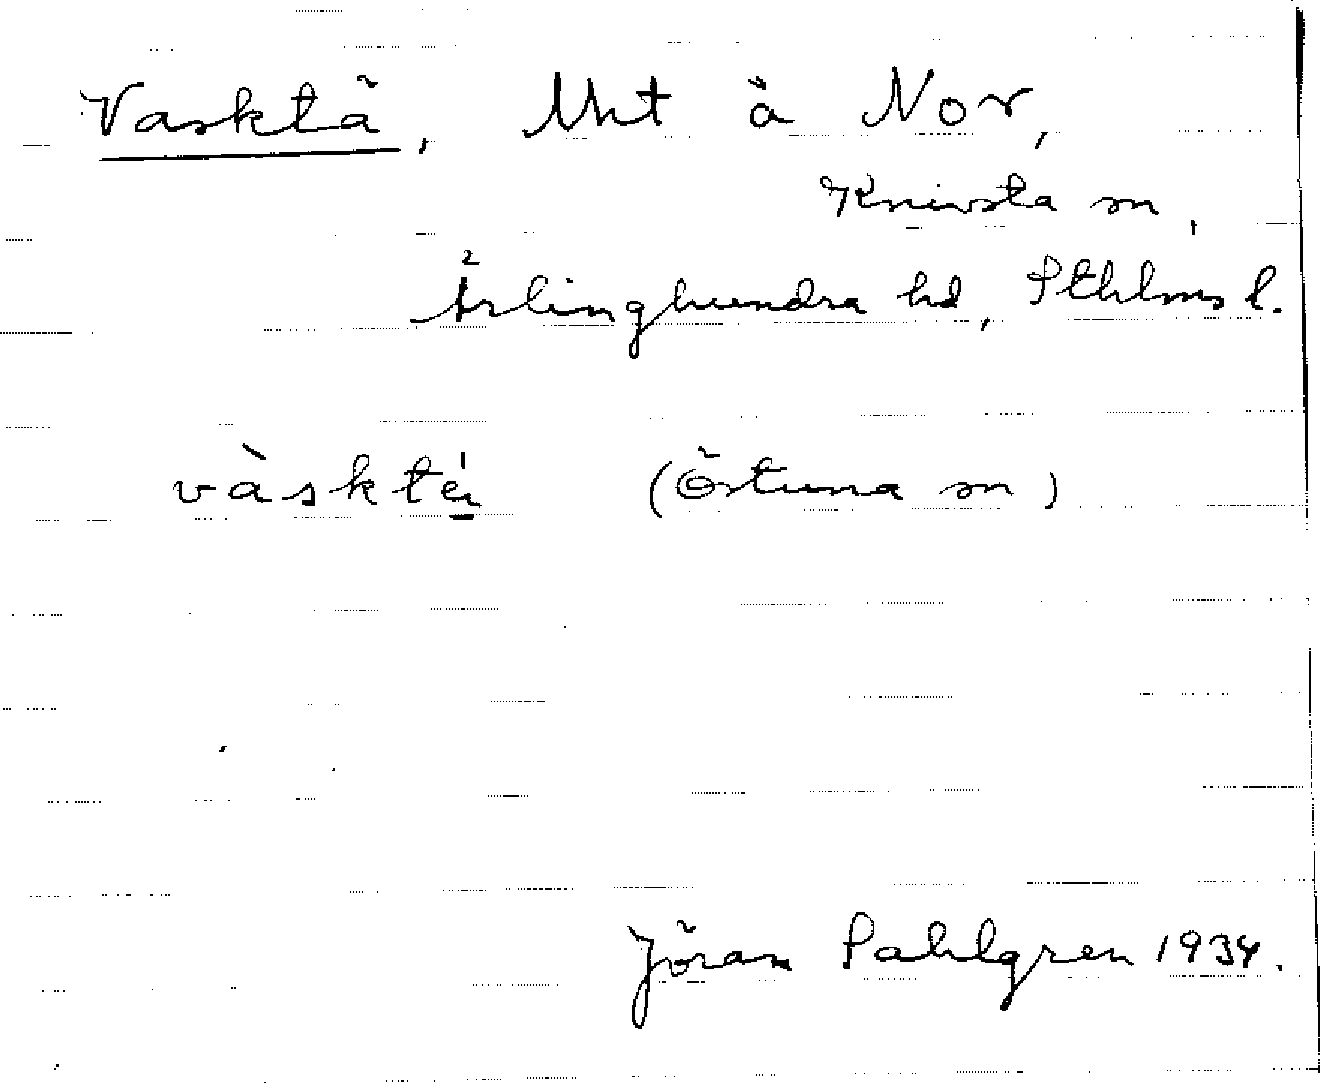 Vasktä, Uht å Nor,
Knivsta sn,
Ärlinghundra hd, Sthlms l.
vàsktéi (Östuna sn)
Jöran Sahlgren 1934.